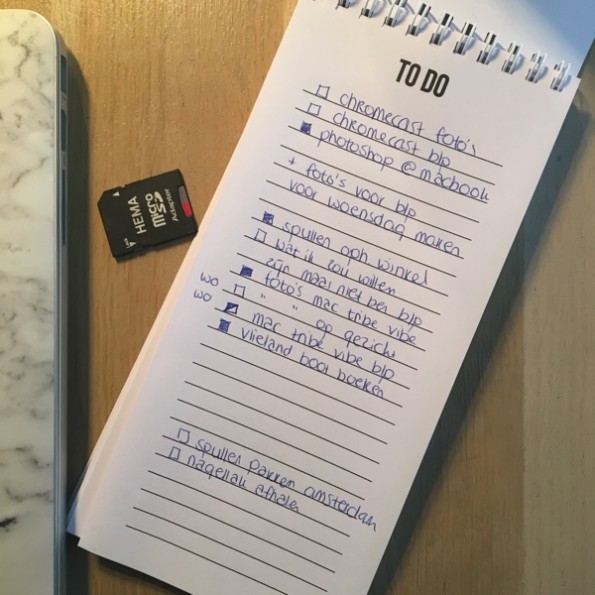 TO DO
chromecast foto's
chromecast blp
photoshop @ macbook
+ foto's voor blp
voor woensdag maken
spullen oph winkel
wat ik zou willen
zijn maar niet ben blp
wo foto's mac tribe vibe
wo " " op gezicht
mac tribe vibe blp
vlieland boot boeken
spullen pakken amsterdam
nagellak afhalen
HEMA
micro
SD
Adapter